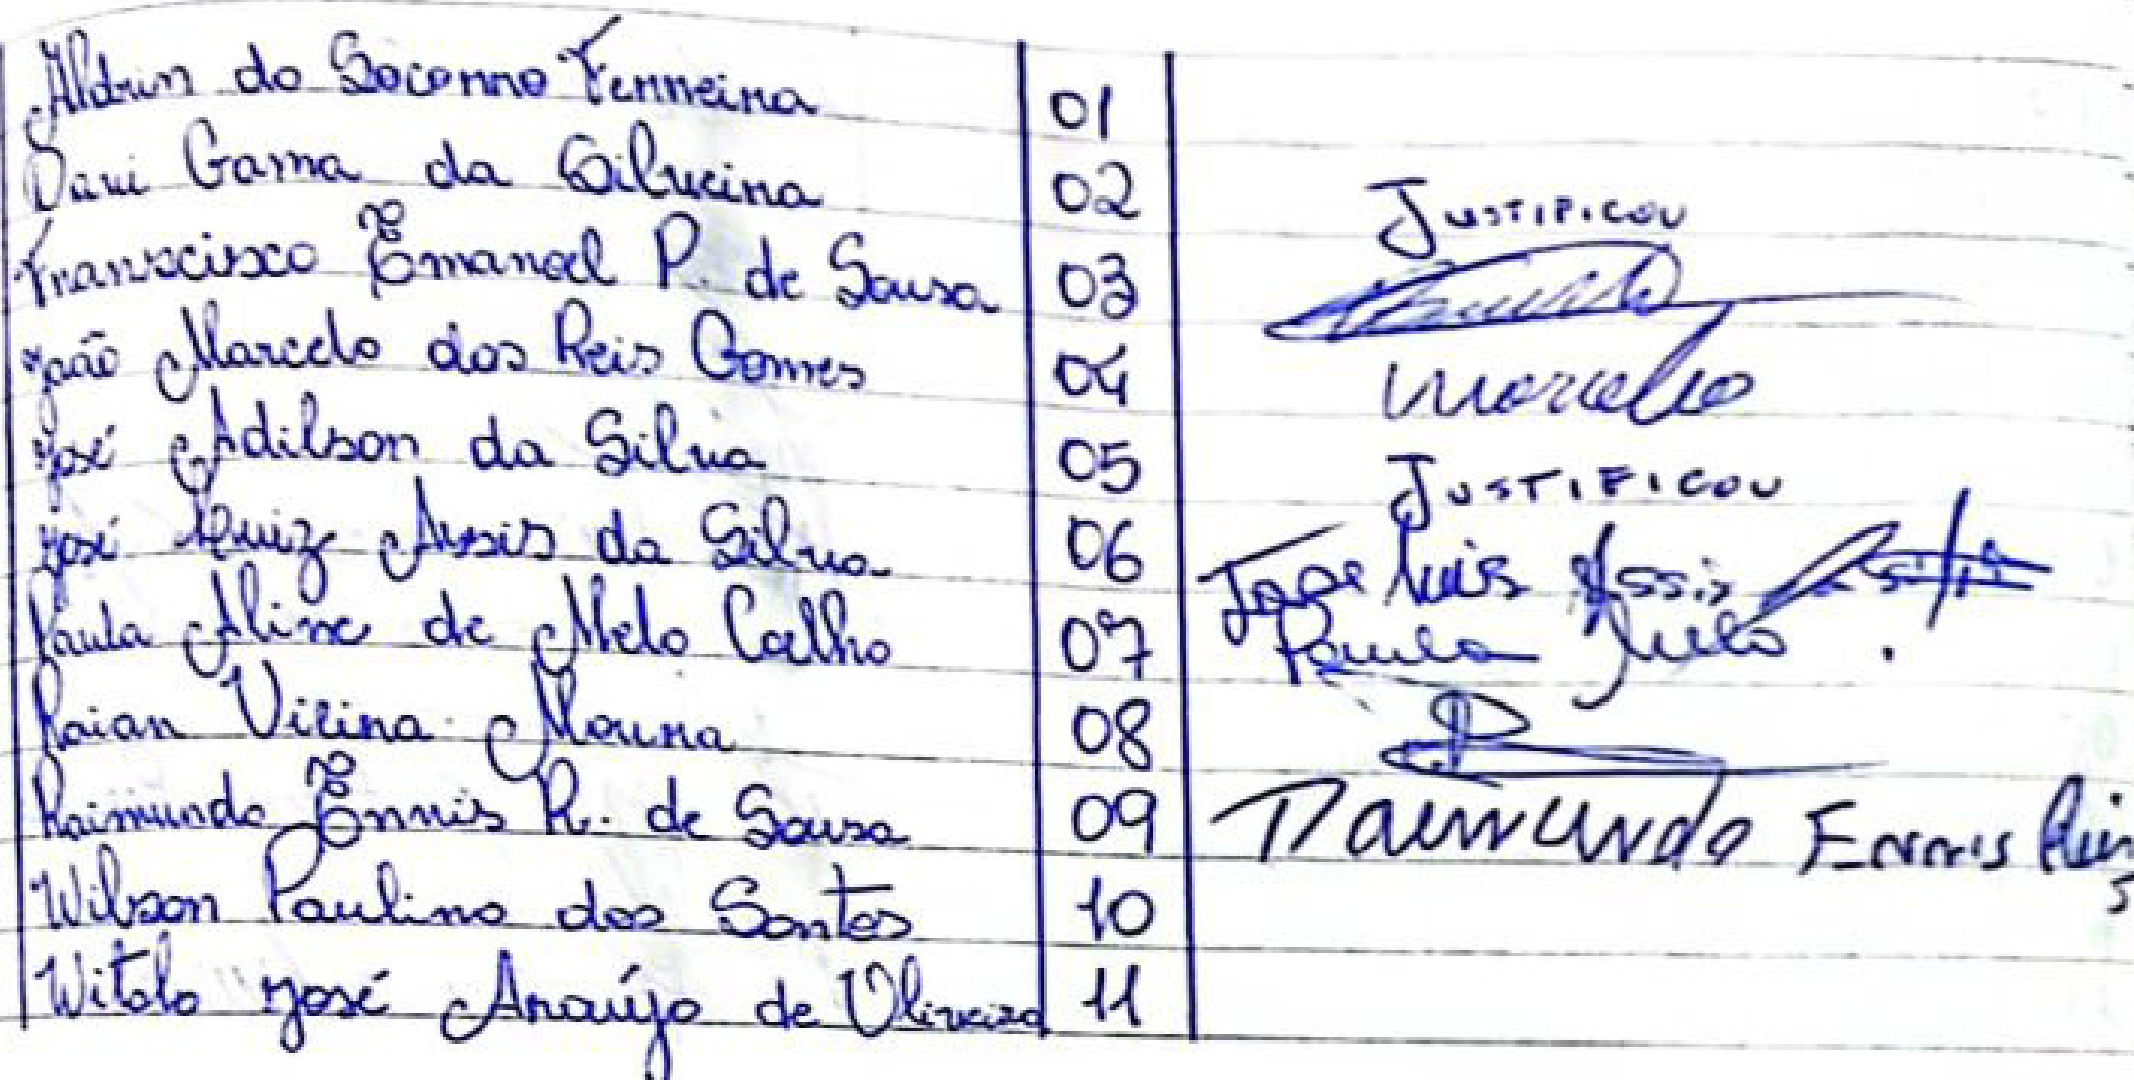 Aldrin do Socorro Ferreira 01
Davi Gama da Silveira 02 JUSTIFICOU
Franscisco Emanoel P. de Sousa 03
João Marcelo dos Reis Gomes 04 Marcelo
José Adilson da Silva 05 JUSTIFICOU
José Luiz Assis da Silva 06 Jose Luis Assis
Paula Aline de Melo Coelho 07 Paula Melo
Raian Vieira Moura 08
Raimundo Ennis R. de Sousa 09 Raimundo Ennis Reis
Wilson Paulino dos Santos 10
Witalo José Araújo de Oliveira 11